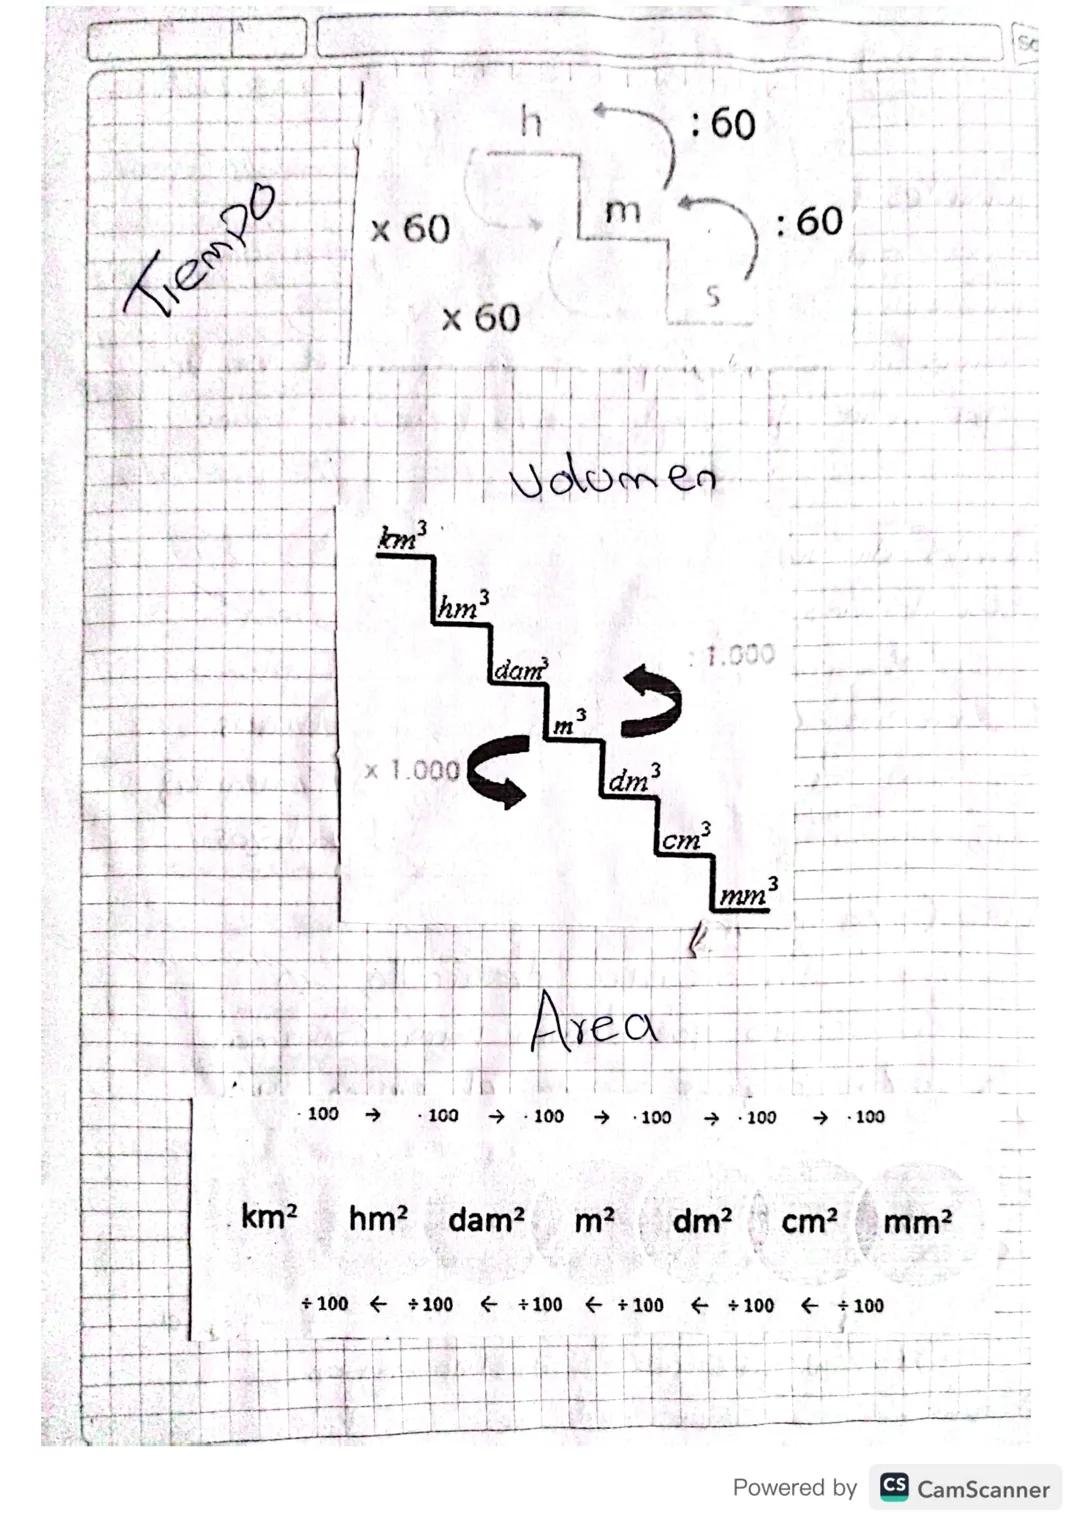 h : 60
Tiempo
x 60 m : 60
x 60 s
Volumen
km³
hm³
dam³
: 1.000
m³
x 1.000
dm³
cm³
mm³
Area
· 100 → · 100 → · 100 → · 100 → · 100 → · 100
km² hm² dam² m² dm² cm² mm²
÷ 100 ← ÷ 100 ← ÷ 100 ← ÷ 100 ← ÷ 100 ← ÷ 100
Powered by CS CamScanner